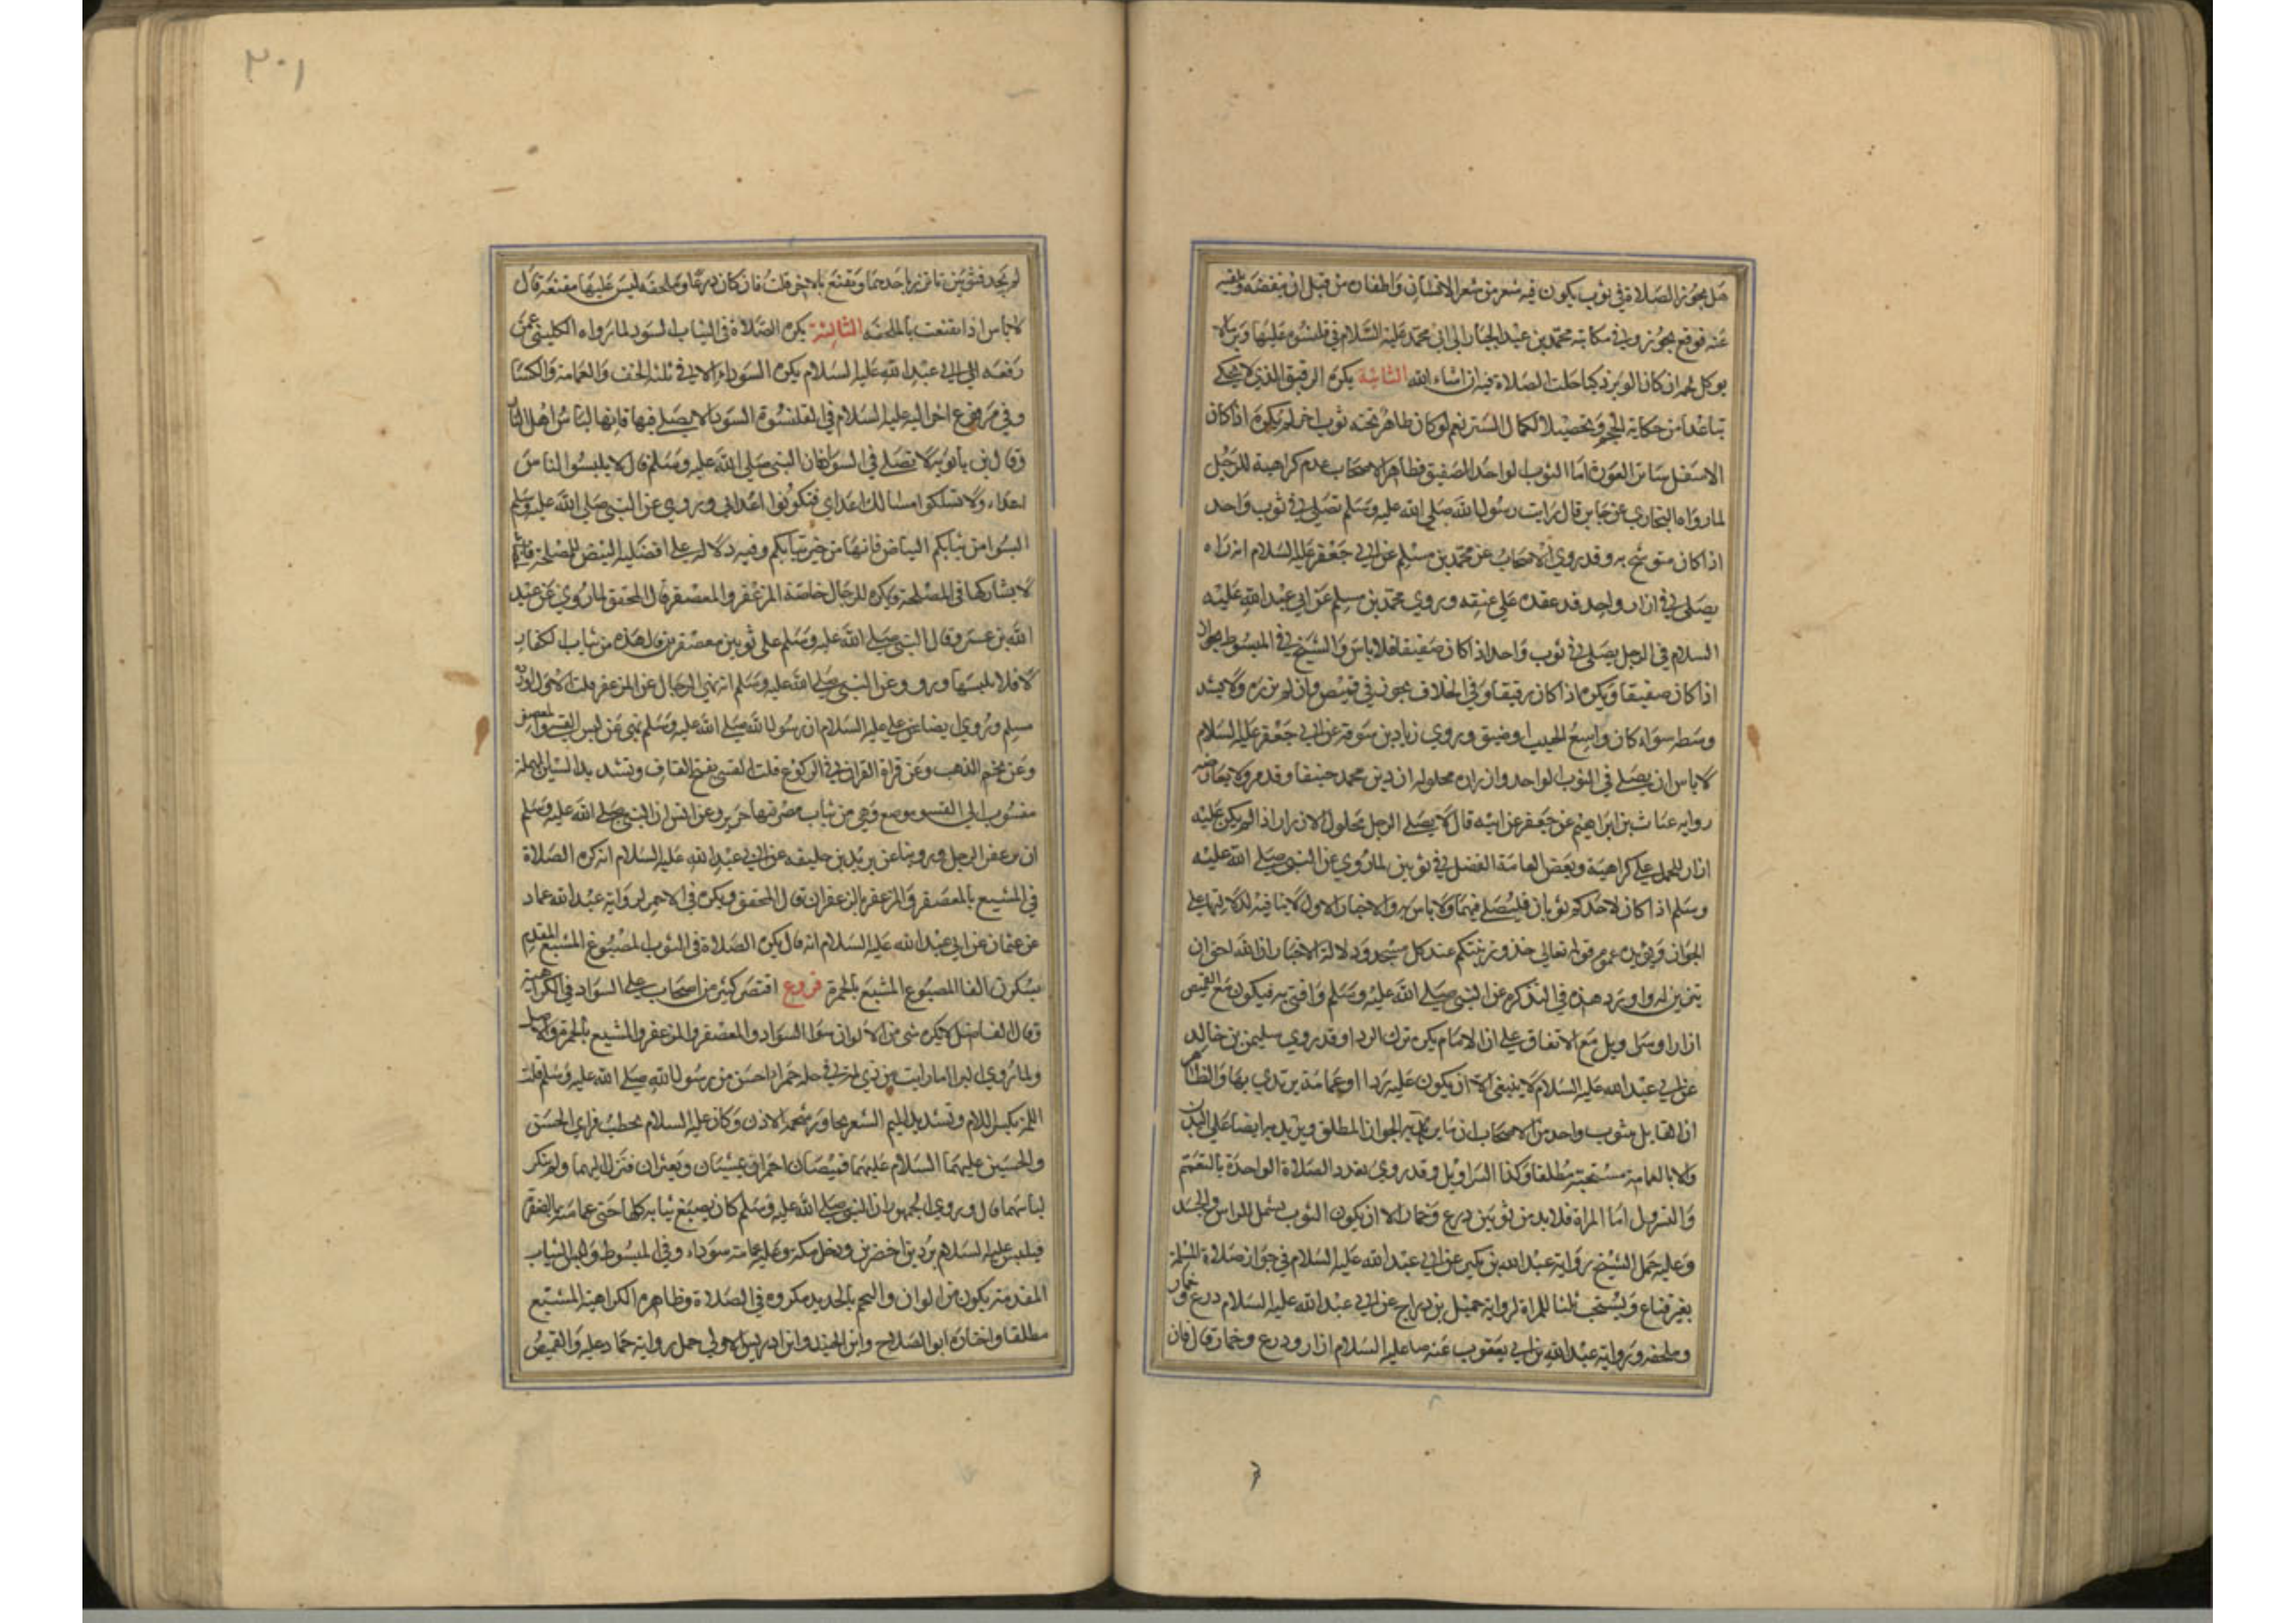 هل يجوز الصلاة في ثوب يكون فيه شعر من شعر الانسان واظفاره من قبل ان ينفضه ويلقيه
عنه فوقع يجوز وفي مكاتبة محمد بن عبد الجبار الى ابي محمد عليه السلام في قلنسوة عليها وبر مالا
يوكل لحمه ان كان الوبر ذكيا حلت الصلاة فيه ان شاء الله الثانية يكره الرقيق الذي لا يحكي
تباعدا من حكاية الحجم وتحصيلا لكمال الستر نعم لو كان طاهر تحته ثوب اخر لم يكره اذا كان
الاسفل ساتر العورة اما الثوب الواحد الصفيق فظاهر الاصحاب عدم كراهية للرجل
لما رواه البخاري عن جابر قال رايت رسول الله صلى الله عليه وسلم تصلي في ثوب واحد
اذا كان متوشح به وقد روي الاصحاب عن محمد بن مسلم عن ابي جعفر عليه السلام انه راه
يصلي في ازار واحد قد عقده على عنقه وروي محمد بن مسلم عن ابي عبد الله عليه
السلام في الرجل يصلي في ثوب واحد اذا كان صفيقا فلا باس والشيخ في المبسوط يجوز
اذا كان صفيقا ويكره اذا كان رقيقا وفي الخلاف يجوز في قميص وان لم يزره ولا يشد
وسطه سواء كان واسع الجيب او ضيق وروي زياد بن سوقة عن ابي جعفر عليه السلام
لا باس ان يصلي في الثوب الواحد وازراره محلوله ان دين محمد حنيفا وقد مر ولا يعارضه
رواية غياث بن ابراهيم عن جعفر عن ابيه قال لا يصلي الرجل محلول الازرار اذا لم يكن عليه
ازار للحمل على كراهية وبعض العامة الفضل في ثوبين لما روي عن النبي صلى الله عليه
وسلم اذا كان لاحدكم ثوبان فليصلي فيهما ولا باس به والاخبار الاول لا ينافيه لدلالتها على
الجواز ويؤيده عموم قوله تعالى خذوا زينتكم عند كل مسجد ودلالة الاخبار ان الله احق ان
يتزين له واورد هذه في التذكرة عن النبي صلى الله عليه وسلم وافتى به فيكون مع القميص
ازار او سراويل مع الاتفاق على ان الامام يكره ترك الردا وقد روي سليمن بن خالد
عن ابي عبد الله عليه السلام لا ينبغي الا ان يكون عليه ردا او عمامة يرتدي بها والظاهر
ان القايل بثوب واحد من الاصحاب انما يريد به الجواز المطلق ويريد به ايضا على البدن
والا بالعمامة مستحبة مطلقا وكذا السراويل وقد روي تعدد الصلاة الواحدة بالتعمم
والتسرول اما المراة فلا بد من ثوبين درع وخمار الا ان يكون الثوب يشمل الراس والجسد
وعليه حمل الشيخ رواية عبد الله بن بكير عن ابي عبد الله عليه السلام في جواز صلاة المسلمة
بغير قناع ويستحب ثلثا للمراة لرواية جميل بن دراج عن ابي عبد الله عليه السلام درع وخمار
وملحفه ورواية عبد الله بن ابي يعقوب عنه صا عليه السلام ازار ودرع وخمار قال فان
٢٠١
لم تجد فثوبين تاتزر باحدهما وتقنع بالاخر قلت فان كان درعا وملحفه ليس عليها مقنعة قال
لا باس اذا تقنعت بالملحفه الثالثة يكره الصلاة في الثياب السود لما رواه الكليني عمن
رفعه الى ابي عبد الله عليه السلام يكره السواد الا في ثلثه الخف والعمامة والكسا
وفي مرفوع اخر اليه عليه السلام في القلنسوة السودا لا يصلي فيها فانها لباس اهل النار
وقال ابن بابويه لا تصلي في السواد فان النبي صلى الله عليه وسلم قال لا يلبسوا لباس
اعداء ولا تسلكوا مسالك اعداي فتكونوا اعداي وروي عن النبي صلى الله عليه وسلم
البسوا من ثيابكم البياض فانها من خير ثيابكم وفيه دلالة على افضلية البيض للمصلحة فانه
لا يشاركها في المصلحة ويكره للرجال خاصة المزعفر والمعصفر قال المحقق لما روي عن عبد
الله بن عمر وقال النبي صلى الله عليه وسلم على ثوبين معصفرين قال هذه من ثياب الكفار
لا فلا تلبسها ورووا عن النبي صلى الله عليه وسلم انه نهى الرجال عن المزعفر قلت الاول اورده
مسلم وروي ايضا عن علي عليه السلام ان رسول الله صلى الله عليه وسلم نهى عن لبس القسي والمعصفر
وعن تختم الذهب وعن قراة القران في الركوع قلت القسي بفتح القاف وتشديد السين المهملة
منسوب الى القس وموضع وهي من ثياب مصر فيها حرير وعن انس ان النبي صلى الله عليه وسلم
ان يزعفر الرجل وروينا عن يزيد بن خليفه عن ابي عبد الله عليه السلام انه كره الصلاة
في المشبع بالمعصفر والمزعفر بالزعفران قال المحقق ويكره في الاحمر لرواية عبد الله عماد
عن عثمان عن ابي عبد الله عليه السلام انه قال يكره الصلاة في الثوب المصبوغ المشبع المقدم
بسكون الفا المصبوغ المشبع بالحمرة فروع اقتصر كثير من اصحاب على السواد في الكراهية
وقال الفاضل لا يكره شي من الالوان سوا السواد والمعصفر والمزعفر والمشبع بالحمرة والاصل
ولما روي البرا ما رايت من ذي لمة في حلة حمرا احسن من رسول الله صلى الله عليه وسلم قلت
اللمة بكسر اللام وتشديد الميم الشعر يجاوز شحمه الاذن وكان عليه السلام يخطب فراي الحسن
والحسين عليهما السلام عليهما قميصان احمران يمشيان ويعثران فنزل اليهما ولم ينكر
لباسهما قال وروي الجمهور ان النبي صلى الله عليه وسلم كان يصبغ ثيابه كلها حتى عمامته بالصفرة
فيلبس عليه السلام بردين اخضرين ودخل مكة وعليه عمامة سوداء وفي المبسوط ولبس الثياب
المقدمة يكون من الوان والتختم بالحديد مكروه في الصلاة وظاهره الكراهية المشبع
مطلقا واختاره ابو الصلاح وابن الجنيد وابن ادريس الاولى حمل رواية حماد عليه والقميص